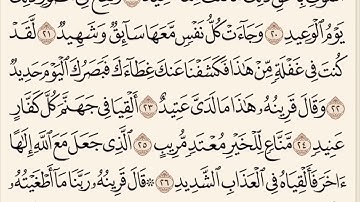 يَوْمُ ٱلْوَعِيدِ ٢٠ وَجَآءَتْ كُلُّ نَفْسٍ مَّعَهَا سَآئِقٌ وَشَهِيدٌ ٢١ لَّقَدْ
كُنتَ فِى غَفْلَةٍ مِّنْ هَٰذَا فَكَشَفْنَا عَنكَ غِطَآءَكَ فَبَصَرُكَ ٱلْيَوْمَ حَدِيدٌ
٢٢ وَقَالَ قَرِينُهُۥ هَٰذَا مَا لَدَىَّ عَتِيدٌ ٢٣ أَلْقِيَا فِى جَهَنَّمَ كُلَّ كَفَّارٍ
عَنِيدٍ ٢٤ مَّنَّاعٍ لِّلْخَيْرِ مُعْتَدٍ مُّرِيبٍ ٢٥ ٱلَّذِى جَعَلَ مَعَ ٱللَّهِ إِلَٰهًا
ءَاخَرَ فَأَلْقِيَاهُ فِى ٱلْعَذَابِ ٱلشَّدِيدِ ٢٦ ۞ قَالَ قَرِينُهُۥ رَبَّنَا مَآ أَطْغَيْتُهُۥ